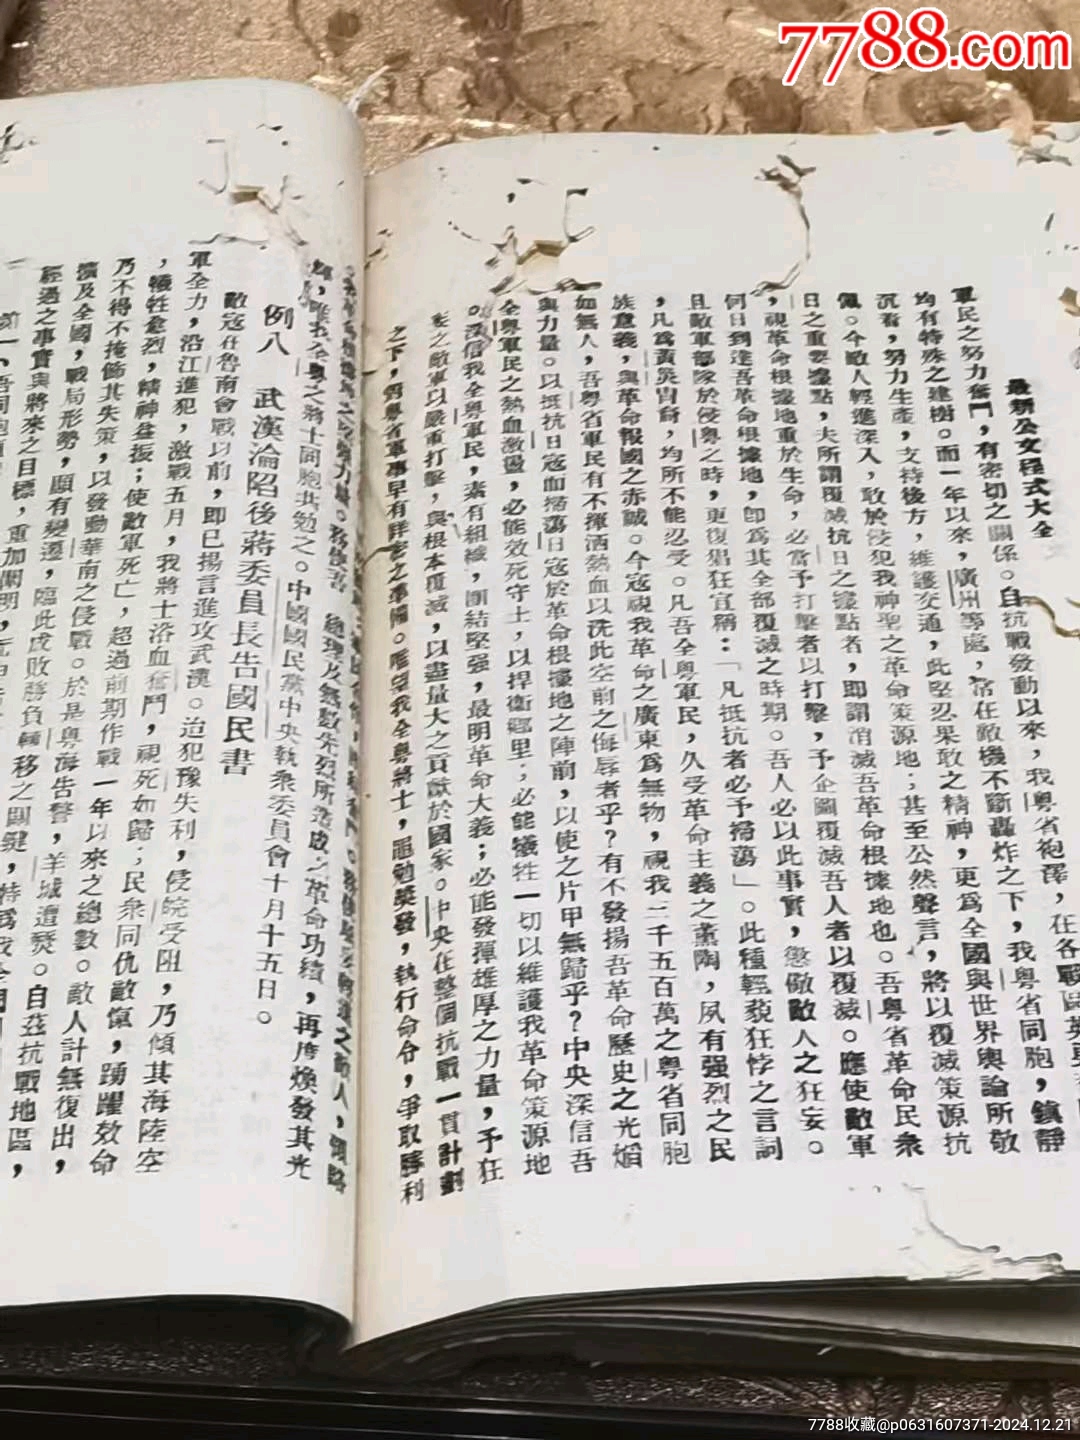 7788.com
最新公文程式大全
軍民之努力奮鬥，有密切之關係。自抗戰發動以來，我粵省袍澤，在各戰區
均有特殊之建樹。而一年以來，廣州等處，常在敵機不斷轟炸之下，我粵省同胞，鎮靜
沉着，努力生產，支持後方，維護交通，此堅忍果敢之精神，更爲全國與世界輿論所敬
佩。今敵人輕進深入，敢於侵犯我神聖之革命策源地；甚至公然聲言，將以覆滅策源抗
日之重要據點，夫所謂覆滅抗日之據點者，即謂消滅吾革命根據地也。吾粵省革命民衆
，視革命根據地重於生命，必當予打擊者以打擊，予企圖覆滅吾人者以覆滅。應使敵軍
何日到達吾革命根據地，卽爲其全部覆滅之時期。吾人必以此事實，懲儆敵人之狂妄。
且敵軍部隊於侵粵之時，更復猖狂宣稱：「凡抵抗者必予掃蕩」。此種輕藐狂悖之言詞
，凡爲黃炎胄裔，均所不能忍受。凡吾全粵軍民，久受革命主義之薰陶，夙有强烈之民
族意義，與革命報國之赤誠。今寇視我革命之廣東爲無物，視我二千五百萬之粵省同胞
如無人，吾粵省軍民有不揮洒熱血以洗此空前之侮辱者乎？有不發揚吾革命歷史之光燄
與力量。以抵抗日寇而掃蕩日寇於革命根據地之陣前，以使之片甲無歸乎？中央深信吾
全粵軍民之熱血激盪，必能效死守土，以捍衛鄉里，必能犧牲一切以維護我革命策源地
。深信我全粵軍民，素有組織，團結堅强，最明革命大義；必能發揮雄厚之力量，予狂
妄之敵軍以嚴重打擊，與根本覆滅，以盡量大之貢獻於國家。中央在整個抗戰一貫計劃
之下，對粵省軍事早有詳密之準備。惟望我全粵將士，黽勉奨發，執行命令，爭取勝利
總理及無數先烈所造成之革命功績，再度煥發其光
輝，唯我全粵之將士同胞共勉之。中國國民黨中央執衆委員會十月十五日。
例八　武漢淪陷後蔣委員長告國民書
敵寇在魯南會戰以前，即已揚言進攻武漢。迨犯豫失利，侵皖受阻，乃傾其海陸空
軍全力，沿江進犯，激戰五月，我將士浴血奮鬥，視死如歸；民衆同仇敵愾，踴躍效命
，犧牲愈烈，精神益振；使敵軍死亡，超過前期作戰一年以來之總數。敵人計無復出，
乃不得不掩飾其失策，以發動華南之侵戰。於是粵海告警，羊城遭燹。自茲抗戰地區，
濱及全國，戰局形勢，頗有變遷，臨此成敗勝負轉移之關鍵，特爲我全國
經過之事實與將來之目標，重加闡明，
7788收藏@p0631607371-2024.12.21